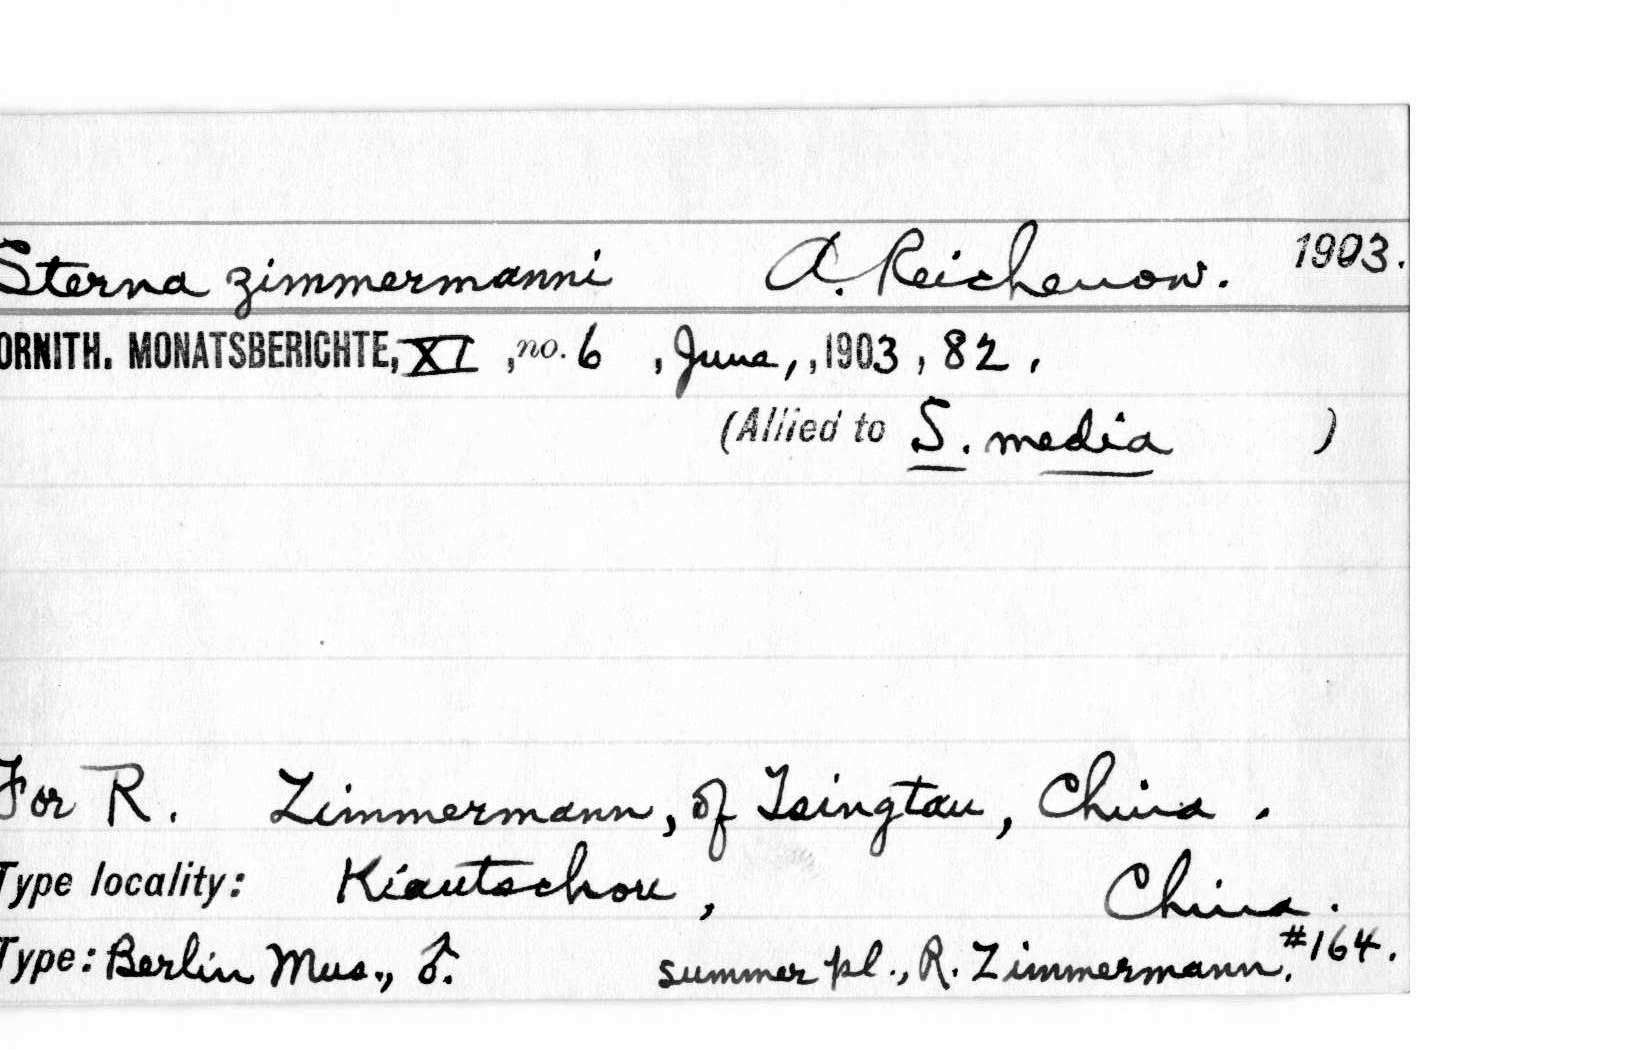 Sterna zimmermanni A. Reichenow. 1903.
ORNITH. MONATSBERICHTE, XI , no. 6 , June, , 1903 , 82 .
(Allied to S. media )
For R. Zimmermann, of Tsingtau, China .
Type locality: Kiautschou , China .
Type: Berlin Mus., ♂. summer pl., R. Zimmermann. #164.